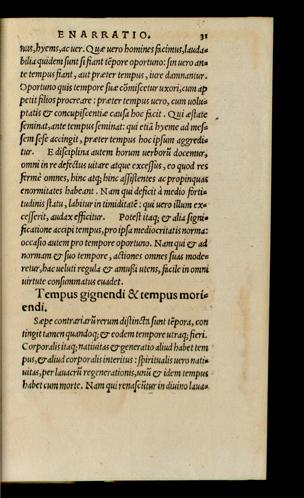 ENARRATIO. 31
nus, hyems, ac uer. Quæ uero homines facimus, lauda=
bilia quidem sunt si fiant tẽpore oportuno: sin uero an=
te tempus fiant, aut præter tempus, iure damnantur.
Oportuno quis tempore suæ cõmiscetur uxori, cum ap
petit filios procreare: præter tempus uero, cum uolu=
ptatis & concupiscentiæ causa hoc facit. Qui æstate
seminat, ante tempus seminat: qui etiã hyeme ad mes=
sem sese accingit, præter tempus hoc ipsum aggredi=
tur. E disciplina autem horum uerborũ docemur,
omni in re defectus uitare atque excessus, eo quod res
fermè omnes, hinc atq; hinc assistentes ac propinquas
enormitates habeant. Nam qui deficit à medio forti=
tudinis statu, labitur in timiditatẽ: qui uero illum ex=
cesserit, audax efficitur. Potest itaq; & alia signi=
ficatione accipi tempus, pro ipsa mediocritatis norma:
occasio autem pro tempore oportuno. Nam qui & ad
normam & suo tempore, actiones omnes suas mode=
retur, hac ueluti regula & amussi utens, facile in omni
uirtute consummatus euadet.
Tempus gignendi & tempus mori=
endi.
Sæpe contrariarũ rerum distincta sunt tẽpora, con
tingit tamen quandoq; & eodem tempore utraq; fieri.
Corporalis itaq; natiuitas & generatio aliud habet tem
pus, & aliud corporalis interitus: spiritualis uero nati=
uitas, per lauacrũ regenerationis, unũ & idem tempus
habet cum morte. Nam qui renascũtur in diuino laua=